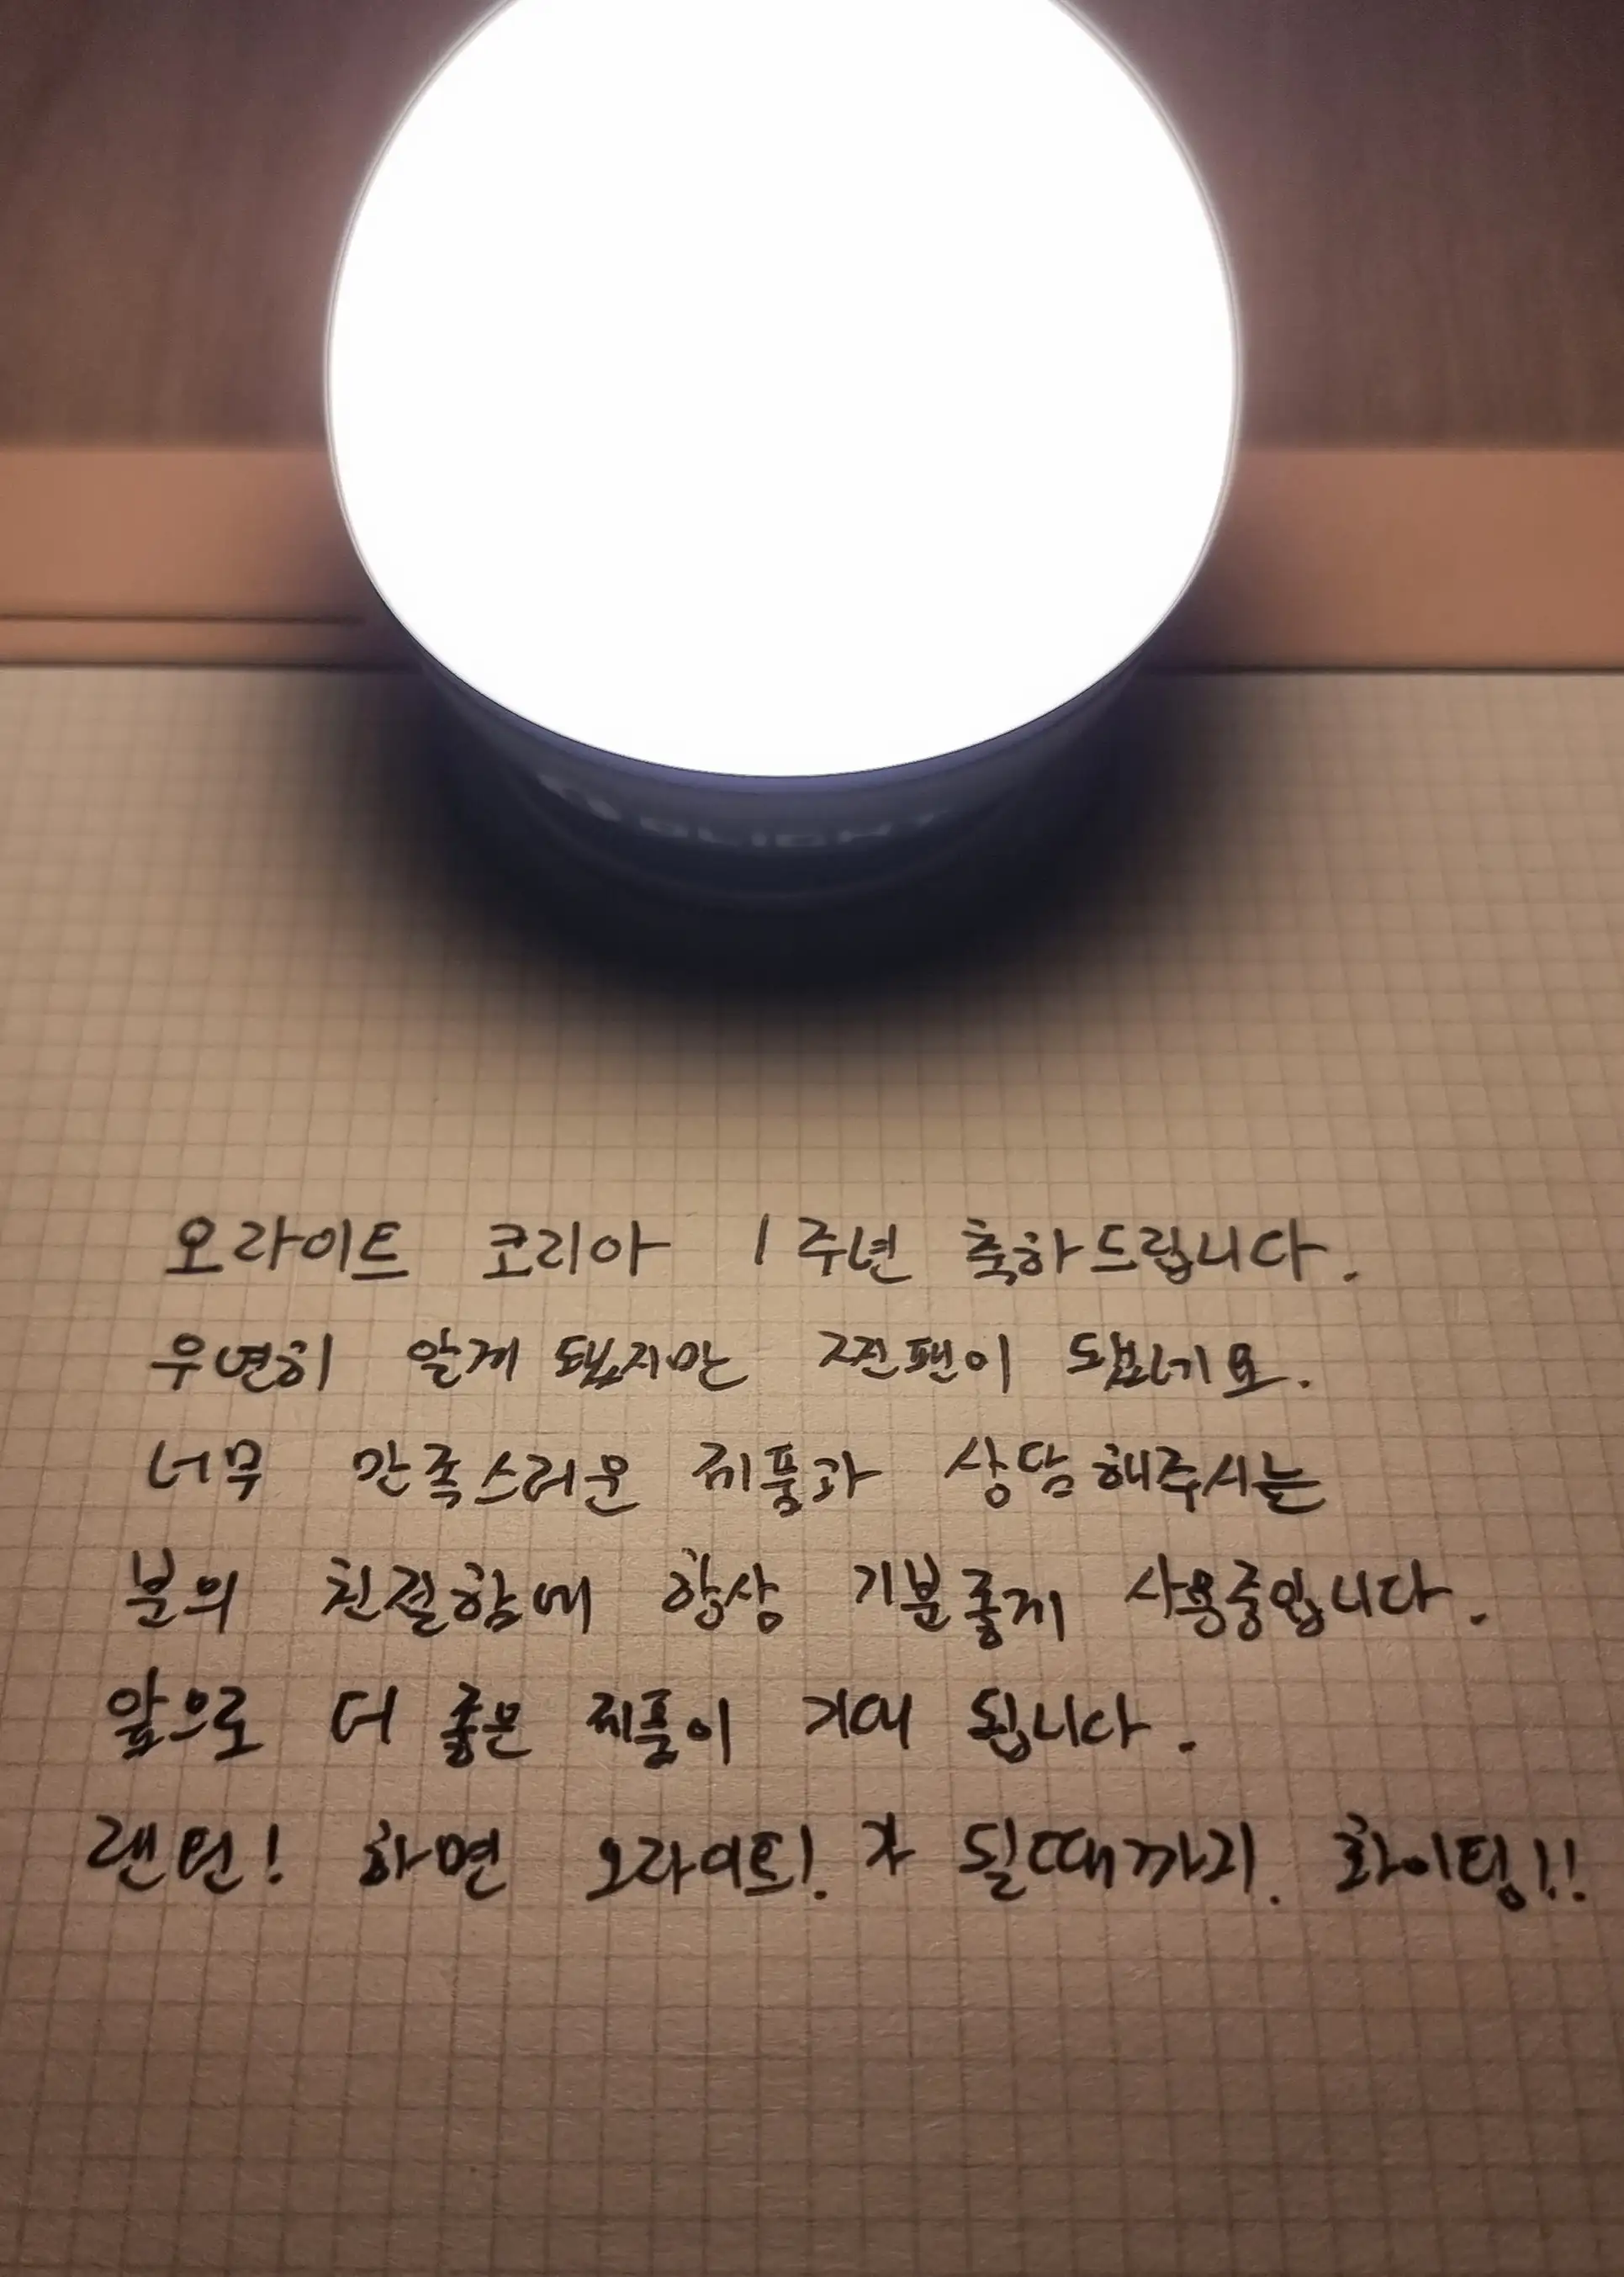 OLIGHT
오라이트 코리아 1주년 축하드립니다.
우연히 알게 됐지만 찐팬이 됐네요.
너무 만족스러운 제품과 상담해주시는
분의 친절함에 항상 기분좋게 사용중입니다.
앞으로 더 좋은 제품이 기대 됩니다.
랜턴! 하면 오라이트! 가 될때까지. 화이팅!!